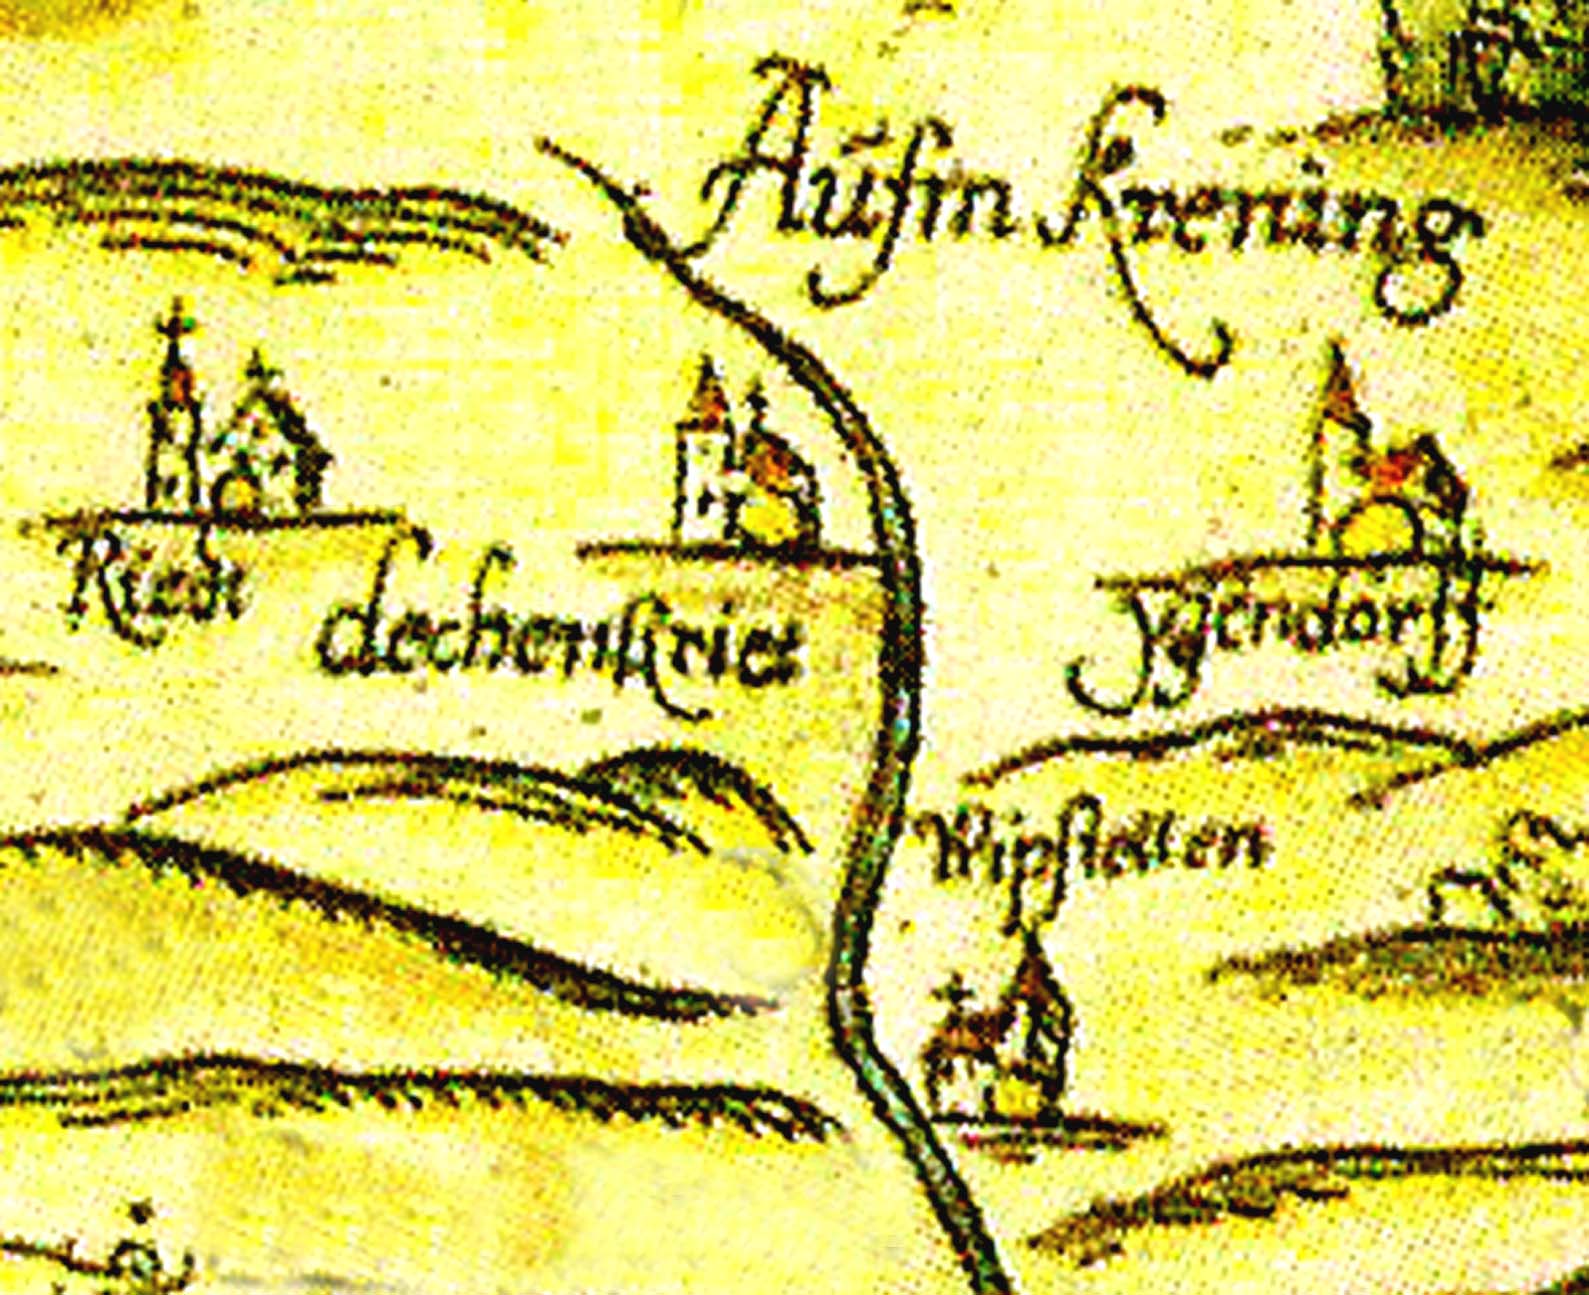 Aŭſm Krening
Rieth
dechenſries
ygendorff
Wipſtetten